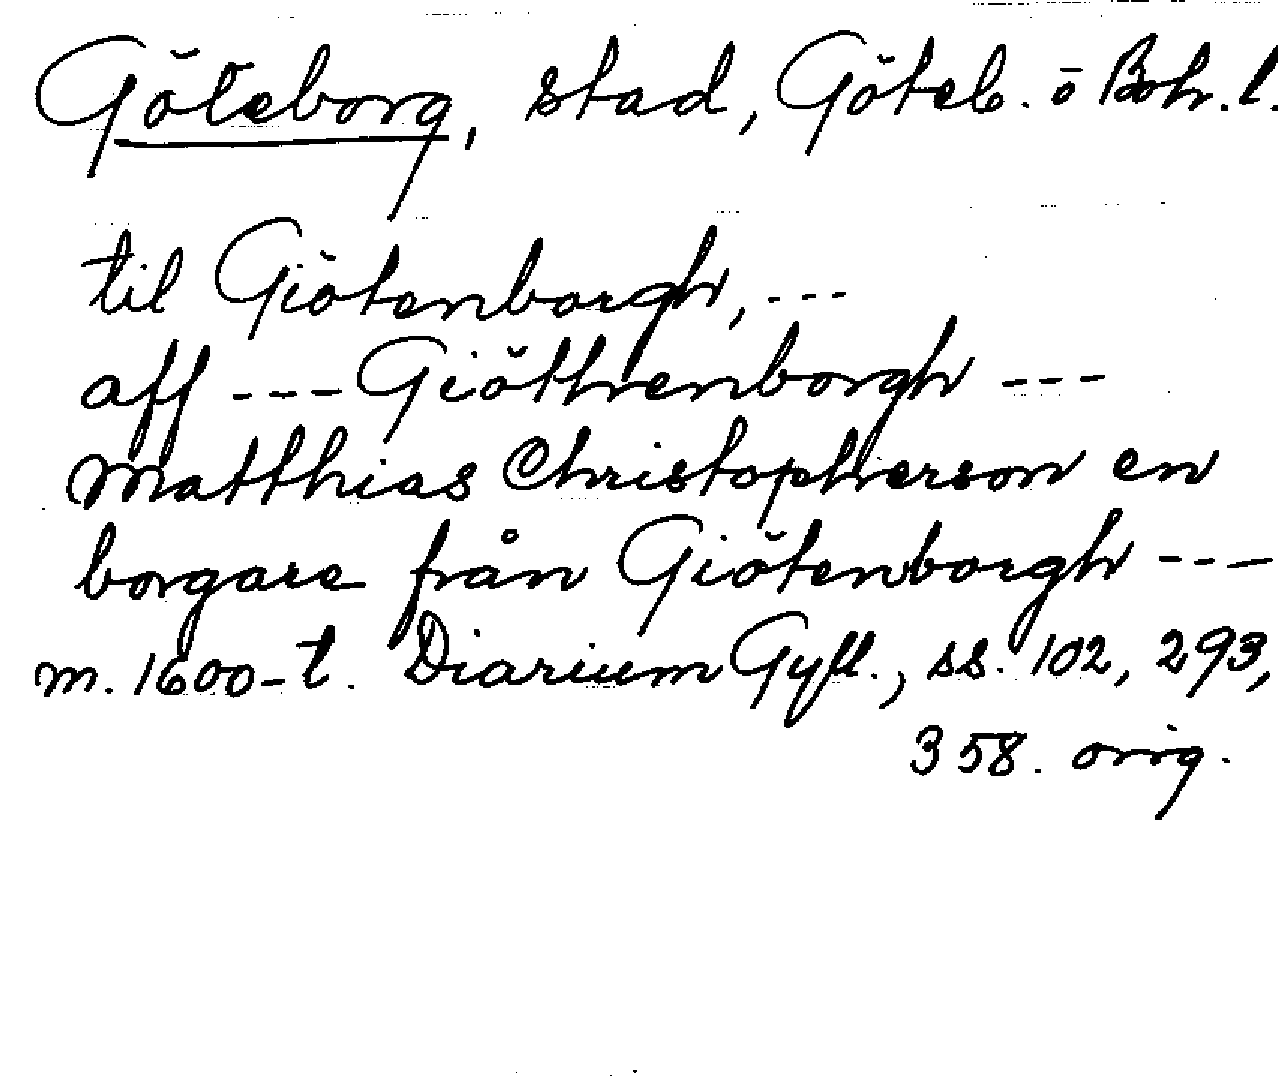 Göteborg, stad, Göteb. ō Boh. l.
til Giötenborgh, ---
aff --- Giöthenborgh ---
Matthias Christopherson en
borgare från Giötenborgh ---
m. 1600-t. Diarium Gyll., ss. 102, 293,
358. orig.